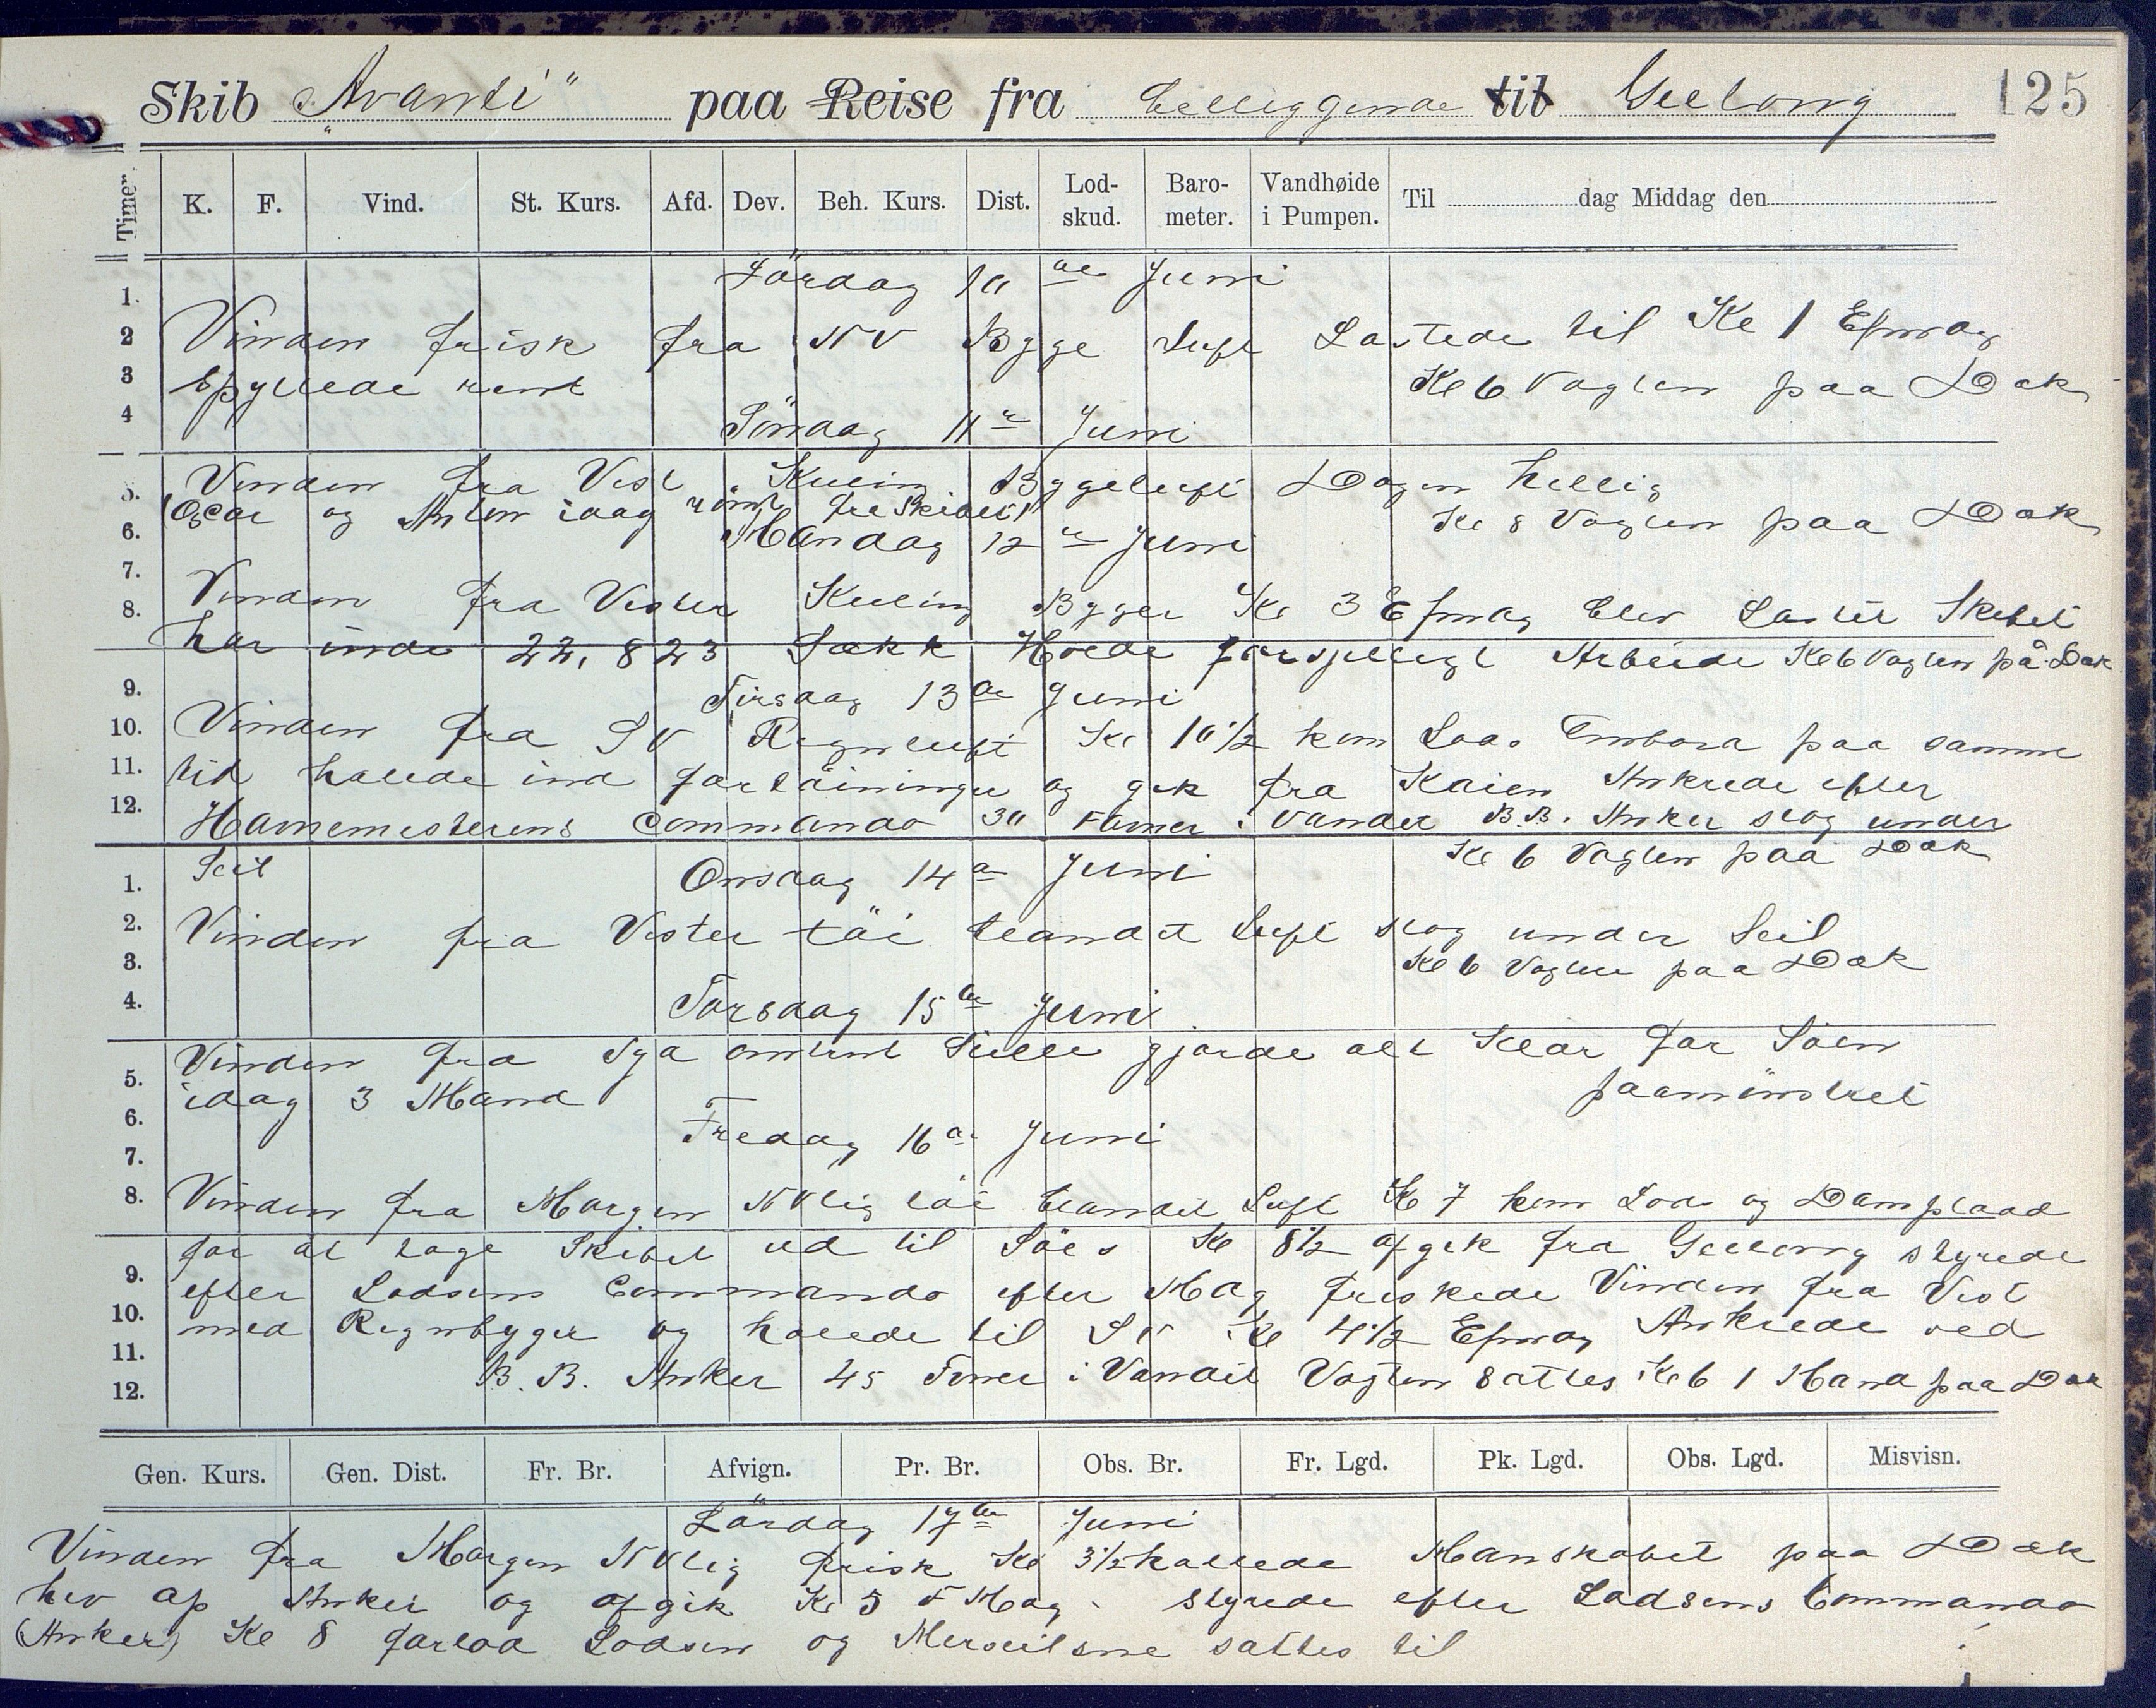 Skib "Avanti" paa Reise fra beliggende til Geelong 125
Timer. K. F. Vind. St. Kurs. Afd. Dev. Beh. Kurs. Dist. Lod-skud. Baro-meter. Vandhøide i Pumpen. Til dag Middag den
Lördag 10de Juni
Vinden frisk fra NV Byge Luft Lastede til Kl 1 Efmdag
spyllede rent Kl 6 Vagten paa Dæk
Söndag 11te Juni
Vinden fra Vest Kuling Bygeluft Dagen hellig
(Oscar og Anton idag römt fra Skibet) Kl 8 Vagten paa Dæk
Mandag 12te Juni
Vinden fra Vester Kuling Byger Kl 3 Efmdag blev Lastet Skibet
har inde 22,823 Sækk Hvede Arbeide Kl 6 Vagten på Dæk
Tirsdag 13de Juni
Vinden fra SV Regnluft Kl 10 1/2 kom Lods Ombord paa samme
tid halede ind fortöininger og gik fra Kaien Ankrede efter
Havnemesterens Commando 30 Favner i Vandet B.B. Anker slog under
Seil Kl 6 Vagten paa Dæk
Onsdag 14de Juni
Vinden fra Vester töi blandet Luft slog under Seil
Kl 6 Vagten paa Dæk
Torsdag 15de Juni
Vinden fra Syd omtrent Stille gjorde alt Klar for Söen
idag 3 Mand paamönstret
Fredag 16de Juni
Vinden fra Morgen NVlig töi blandet Luft Kl 7 kom Lods og Dampbaad
for at tage Skibet ud til Söes Kl 8 1/2 afgik fra Geelong styrede
efter Lodsens Commando efter Mdag friskede Vinden fra Vest
med Regnbyger og halede til SV Kl 4 1/2 Efmdag Ankrede ved
B.B. Anker 45 Favner i Vandet Vagten sattes Kl 6 1 Mand paa Dæk
1. 2 3 4 5. 6. 7. 8. 9. 10. 11. 12.
1. 2. 3. 4. 5. 6. 7. 8. 9. 10. 11. 12.
Gen. Kurs. Gen. Dist. Fr. Br. Afvign. Pr. Br. Obs. Br. Fr. Lgd. Pk. Lgd. Obs. Lgd. Misvisn.
Lördag 17de Juni
Vinden fra Morgen NVlig frisk Kl 3 1/2 kallede Manskabet paa Dæk
hev op Anker og afgik Kl 5 F Mdag styrede efter Lodsens Commando
(Anker) Kl 8 forlod Lodsen og Merseilene sattes til